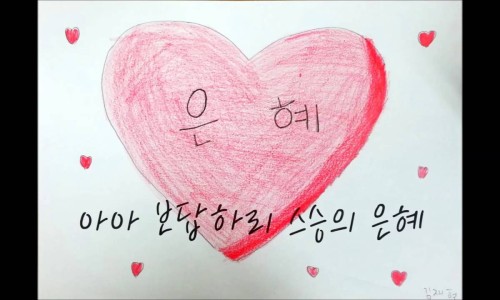 은 혜
아아 보답하리 스승의 은혜